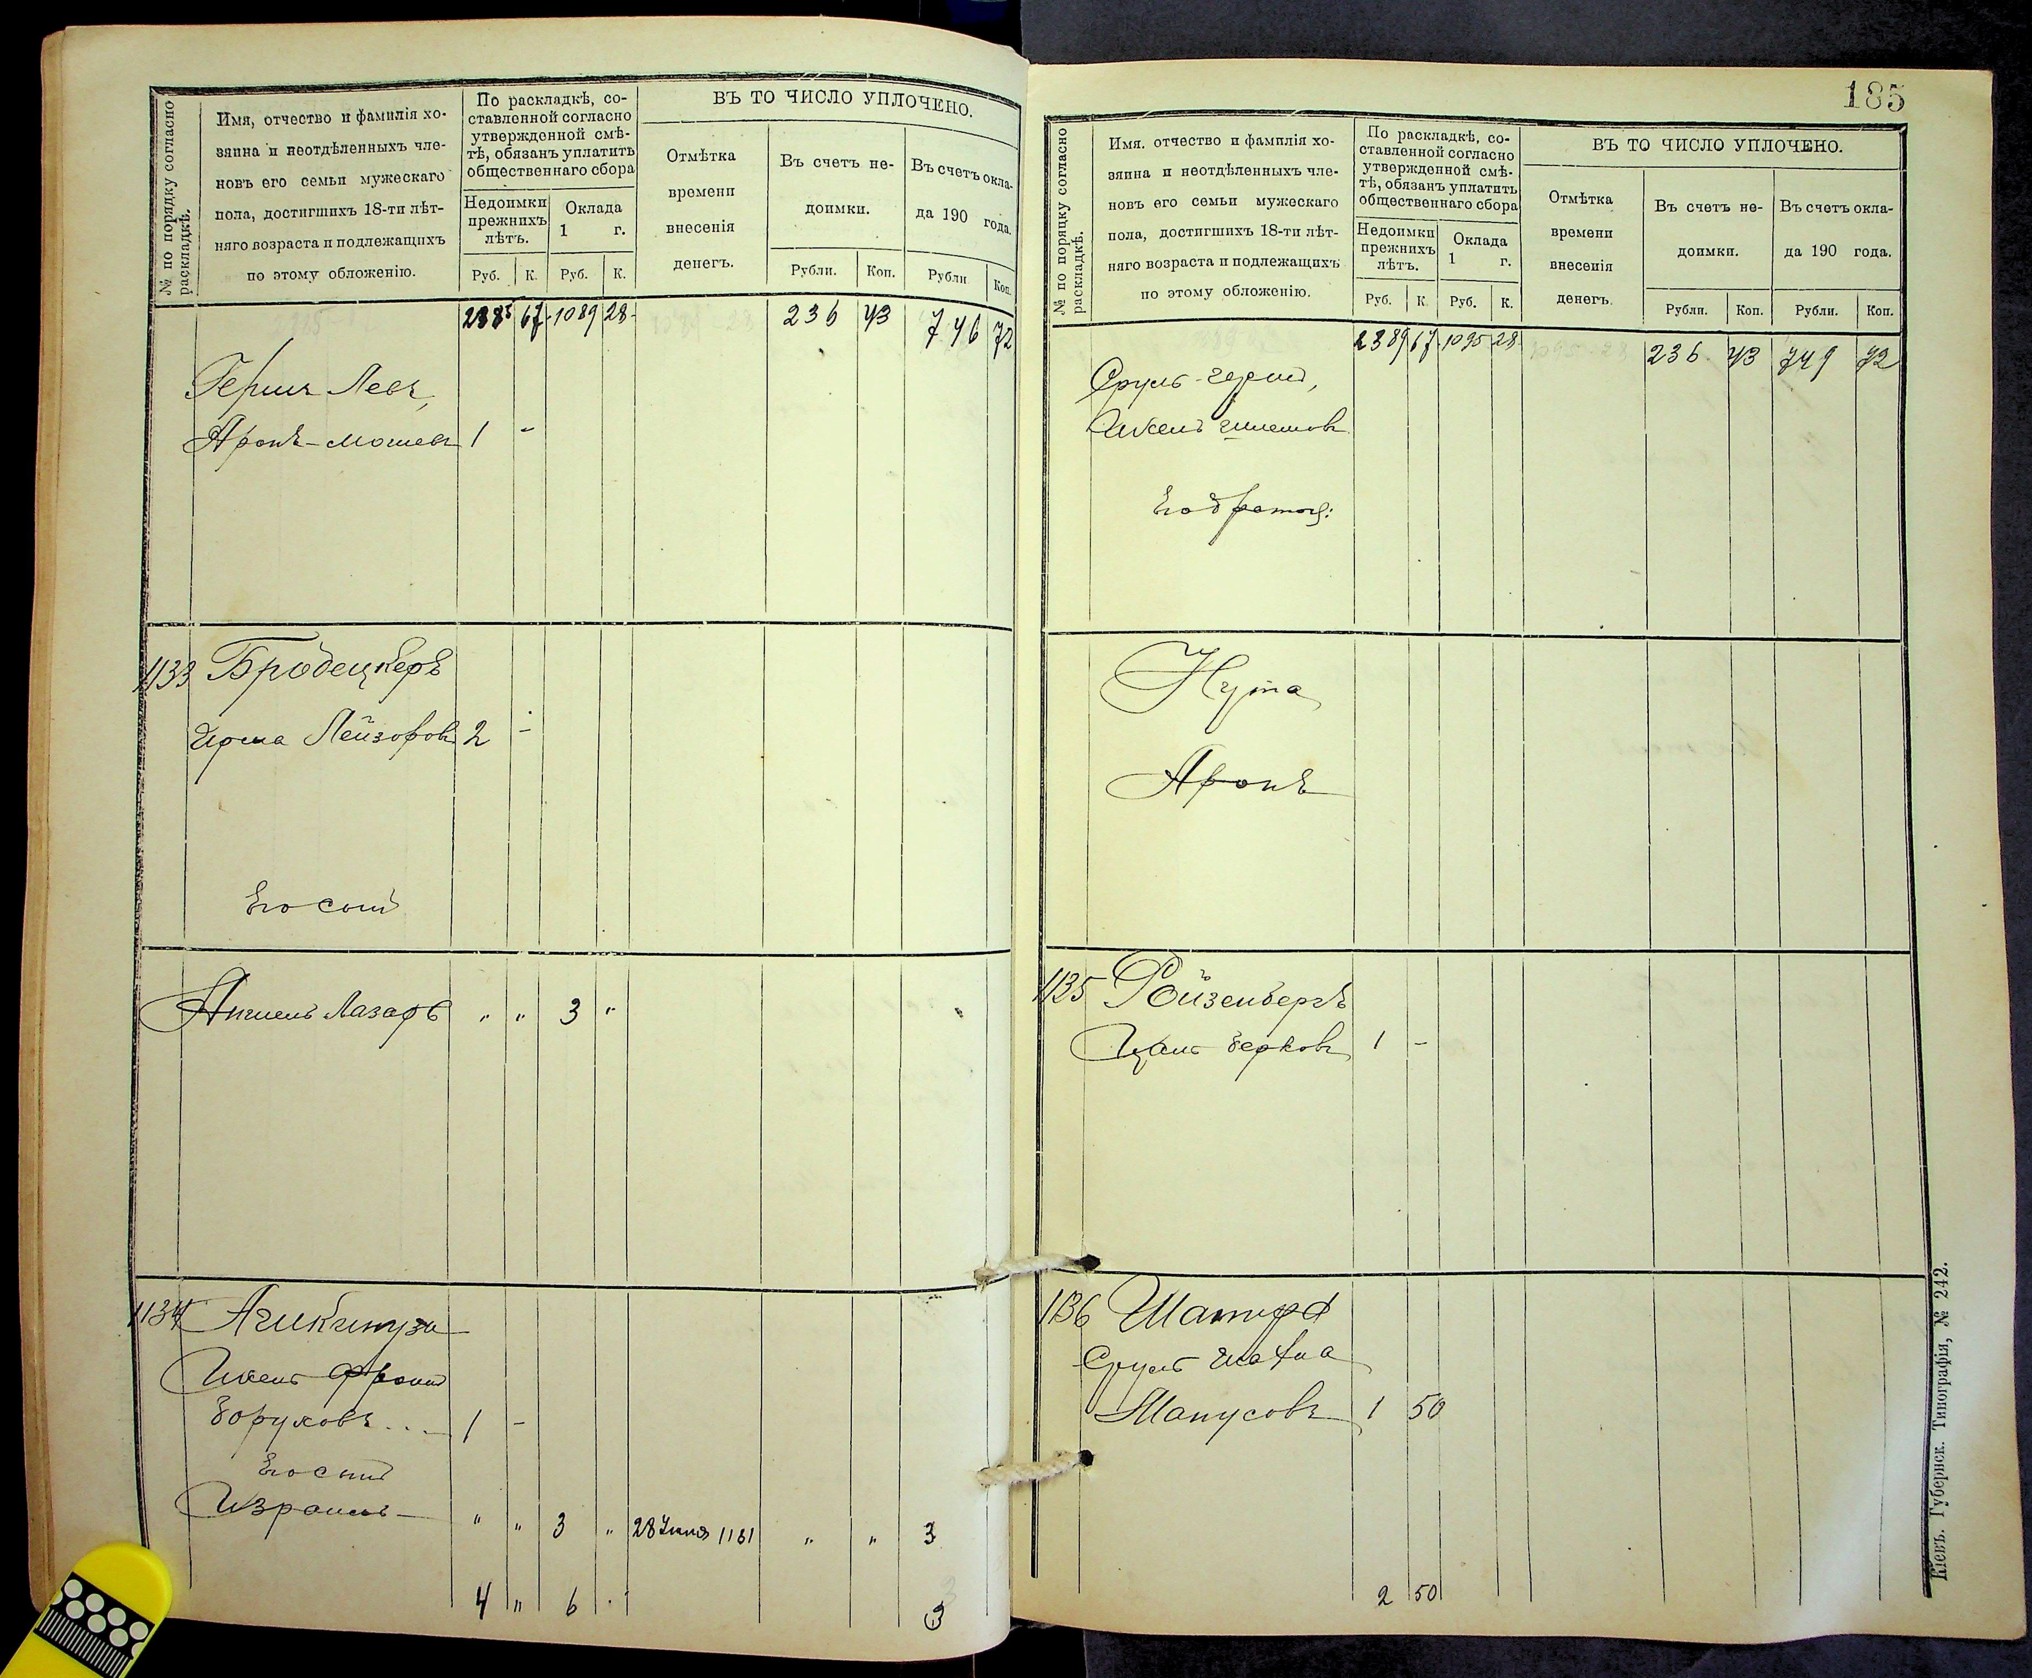 № по порядку согласно раскладкѣ.
Имя, отчество и фамилія хо-
зяина и неотдѣленныхъ чле-
новъ его семьи мужескаго
пола, достигшихъ 18-ти лѣт-
няго возраста и подлежащихъ
по этому обложенію.
По раскладкѣ, со-
ставленной согласно
утвержденной смѣ-
тѣ, обязанъ уплатить
общественнаго сбора
Недоимки
прежнихъ
лѣтъ.
Оклада
1 г.
Руб. К. Руб. К.
ВЪ ТО ЧИСЛО УПЛОЧЕНО.
Отмѣтка
времени
внесенія
денегъ.
Въ счетъ не-
доимки.
Рубли. Коп.
Въ счетъ окла-
да 190 года.
Рубли Коп.
2385 67 1089 28 236 43 746 72
Гершъ Левъ,
Аронъ-Мошевъ 1 -
1133 Бродецкеръ
Лейзоровъ 2 -
Его сынъ
Лазарь " " 3 "
1134
Боруховъ 1 -
Его сынъ
Израиль " " 3 " 28 Іюня 1161 " " 3
4 " 6 3
185
№ по порядку согласно раскладкѣ.
Имя, отчество и фамилія хо-
зяина и неотдѣленныхъ чле-
новъ его семьи мужескаго
пола, достигшихъ 18-ти лѣт-
няго возраста и подлежащихъ
по этому обложенію.
По раскладкѣ, со-
ставленной согласно
утвержденной смѣ-
тѣ, обязанъ уплатить
общественнаго сбора
Недоимки
прежнихъ
лѣтъ.
Оклада
1 г.
Руб. К. Руб. К.
ВЪ ТО ЧИСЛО УПЛОЧЕНО.
Отмѣтка
времени
внесенія
денегъ.
Въ счетъ не-
доимки.
Рубли. Коп.
Въ счетъ окла-
да 190 года.
Рубли. Коп.
2389 67 1095 28 236 43 749 72
Сруль-Герш,
Его братья:
Нута
Аронъ
1135 Ройзенбергъ
Берковъ 1 -
1136
Сруль
Манусовъ 1 50
2 50
Кіевъ. Губернск. Типографія, № 242.